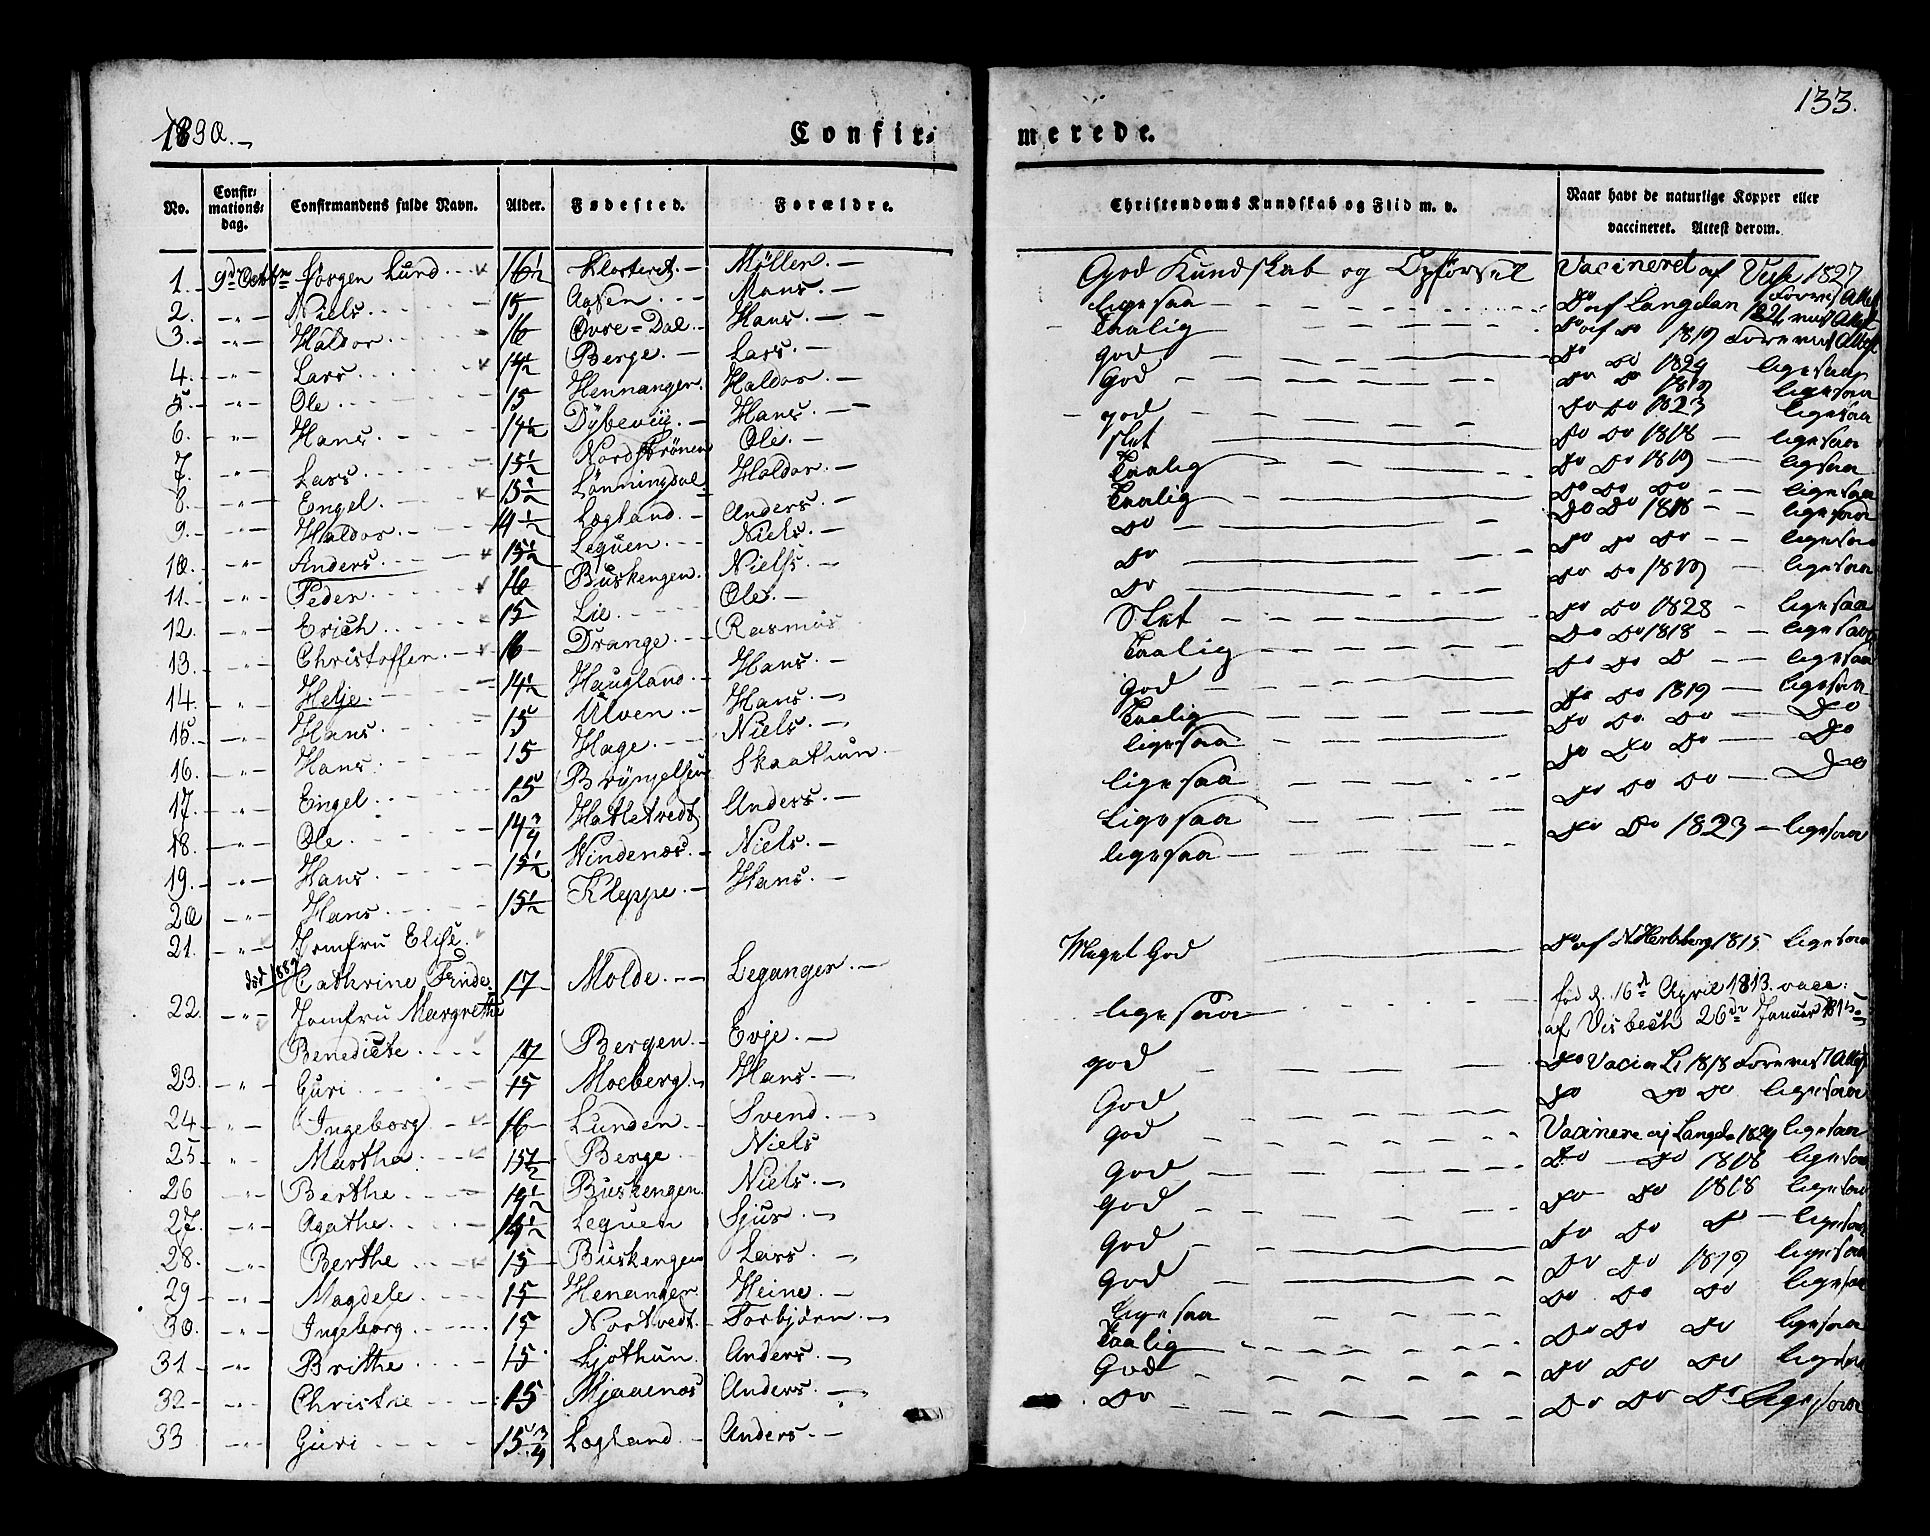 1830.
Confir=
merede.
133.
No.
Confir=
mations=
dag.
Confirmandens fulde Navn.
Alder.
Fødested.
Forældre.
Christendoms Kundskab og Flid m. v.
Naar havt de naturlige Kopper eller
vaccineret. Attest derom.
1. 9de Octbr Jørgen Lund 16½ Klosteret. Möller. God Kundskab og Opførsel Vacineret af 1827
2. Niels 15 Aasen Mons. ligesaa Do af Langdan
3. Haldor 16 Øvre=Dal Hans. Taalig Do af Do 1819
4. Lars 14½ Berge. Lars. god Do Do 1824 ligesaa
5. Ole 15 Hennanger. Haldor God Do Do 1819 ligesaa
6. Hans 14½ Dybeviig. Hans. god Do Do 1823 ligesaa
7. Lars 15½ Nordströnen Ole. slet Do Do 1818 ligesaa
8. Engel 15½ Lønningdal Haldor Taalig Do Do 1819 ligesaa
9. Haldor 14½ Lægland Anders. Taalig Do Do Do ligesaa
10. Anders. 15½ Lequen Niels. Do Do Do 1818 ligesaa
11. Peder 16 Buskengen. Niels. Do Do Do Do ligesaa
12. Erich 15 Lie. Ole. Do Do Do 1819 ligesaa
13. Christoffen 16 Drange. Rasmus Slet Do Do 1828 ligesaa
14. Helje. 14½ Haugland Hans. Taalig Do Do 1818 ligesaa
15. Hans 15 Ulven Hans. God Do Do D ligesaa
16. Hans 15 Hage. Niels. Taalig Do Do 1819 ligesaa
17. Engel 15 Skaathun ligesaa Do Do Do Do
18. Ole 14¾ Hatletvedt Anders. ligesaa Do Do Do Do
19. Hans 15½ Vindenæs. Niels. Ligesaa Do Do Do Do
20 Hans 15½ Kleppe Hans. ligesaa Do Do 1823 ligesaa
21. Jomfru Elise
død 1889 Cathrine Finde 17 Molde. Leganger. Meget God Do af N. Hertzberg 1815 ligesaa
22. Jomfru Margrethe fød d. 16d April 1813. vacc:
Benedicte 17 Bergen. Evje. ligesaa af Visbech 26de Januar
23. Guri 15 Moeberg Hans. god Do 1818
24 Ingeborg 16 Lunden Svend. God Do Do Do ligesaa
25 Martha 15½ Berge Niels God 1824 ligesaa
26 Berthe 14½ Buskengen. Niels. God Do Do 1818 ligesaa
27. Agathe 14½ Lequen Sjur. God Do Do 1818 ligesaa
28. Berthe 15 Buskengen Lars. God Do Do D ligesaa
29 Magdele 15 Henanger Heine. God Do Do 1819 ligesaa
30. Ingeborg 15 Nortvedt. Torbjörn. Ligesaa Do Do Do ligesaa
31 Brithe 15 Ljothun. Anders. Taalig Do Do Do ligesaa
32 Christie 15 Mjaanæs Anders. God Do Do Do ligesaa
33 Guri 15¾ Lægland Anders. Do Do Do Do ligesaa